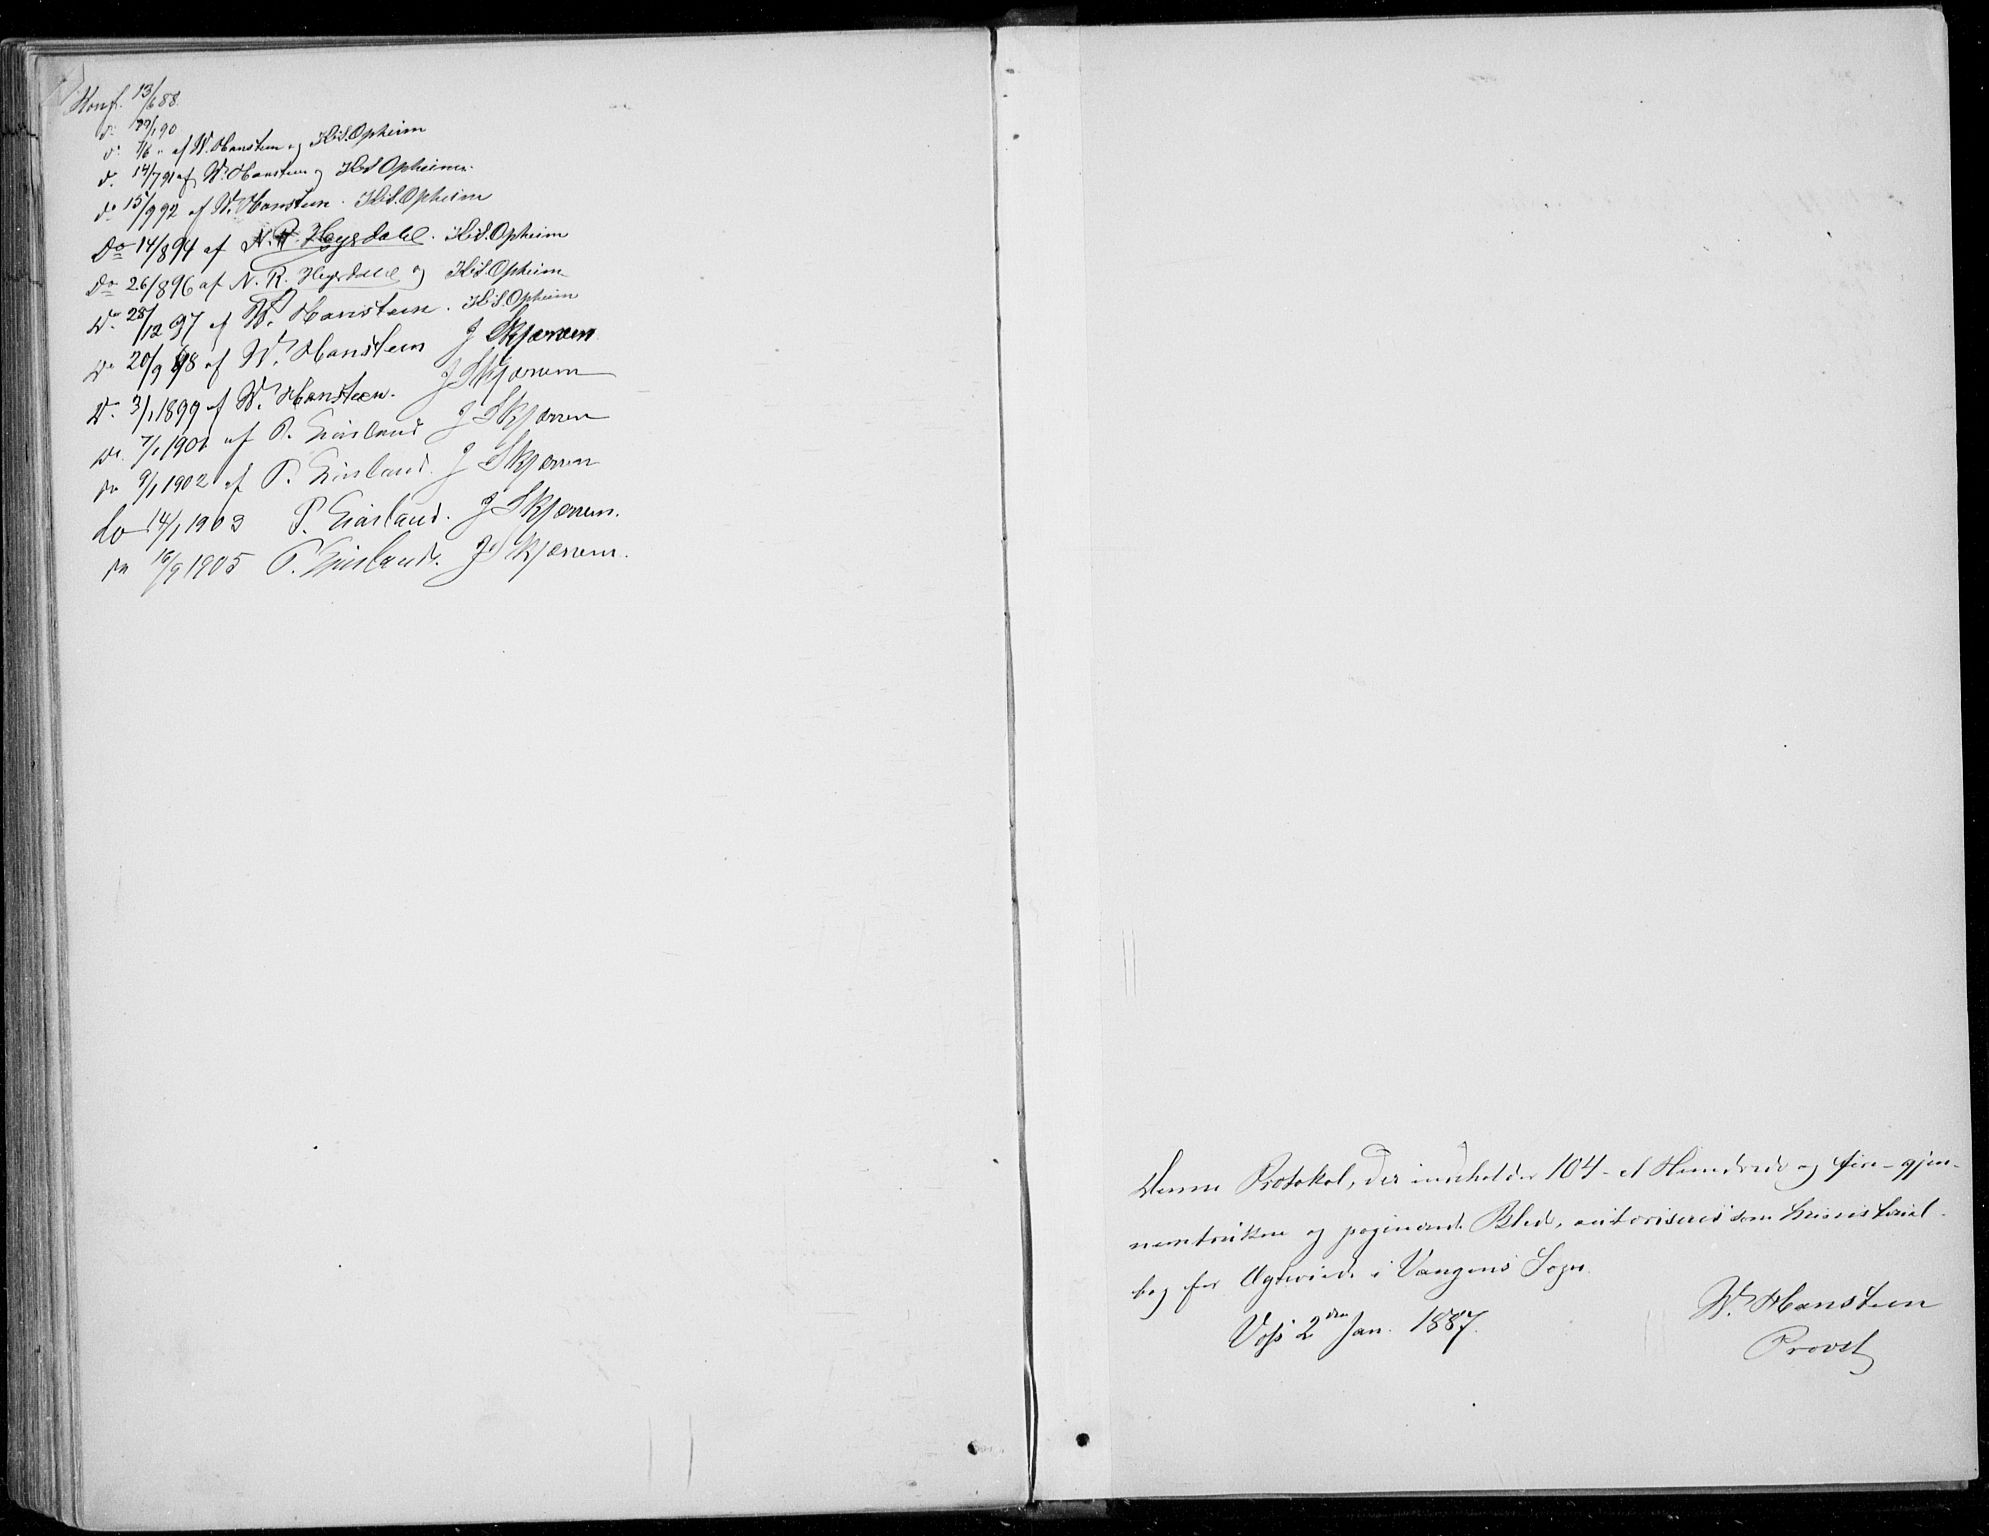 Konf. 13/6 88.
do 27/1 90
do 7/6 " af W. Hansteen og H.S. Opheim
do 14/7 91 af W. Hansteen og H.S. Opheim
do 15/9 92 af W. Hansteen. H.S. Opheim
Do 14/8 94 af N. R. Høgsdahl. H.S. Opheim
Do 26/8 96 af N. R. og H.S. Opheim
Do 28/12 97 af W. Hansteen. H.S. Opheim
Do 20/9 98 af W. Hansteen J Skjerven
Do 3/1 1899 af W. Hansteen. J Skjerven
Do 7/1 1901 af P. J Skjerven
Do 9/1 1902 af P. J Skjerven
do 14/1 1903 P. J Skjerven.
Do 16/9 1905 P. J Skjerven.
Denne Protokol, der indeholder 104 - et Hundrede og fire - gjen-
nemtrukne og paginerede Blade, autoriseres som Ministerial-
bog for Ægteviede i Vangens Sogn.
Voss 2den Jan. 1887.
W. Hansteen
Provst